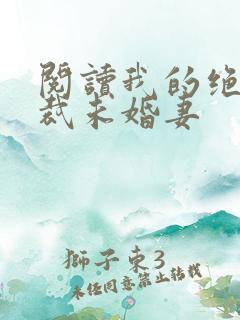 閱讀我的绝
裁未婚妻
獅子東3
未经同意禁止转载